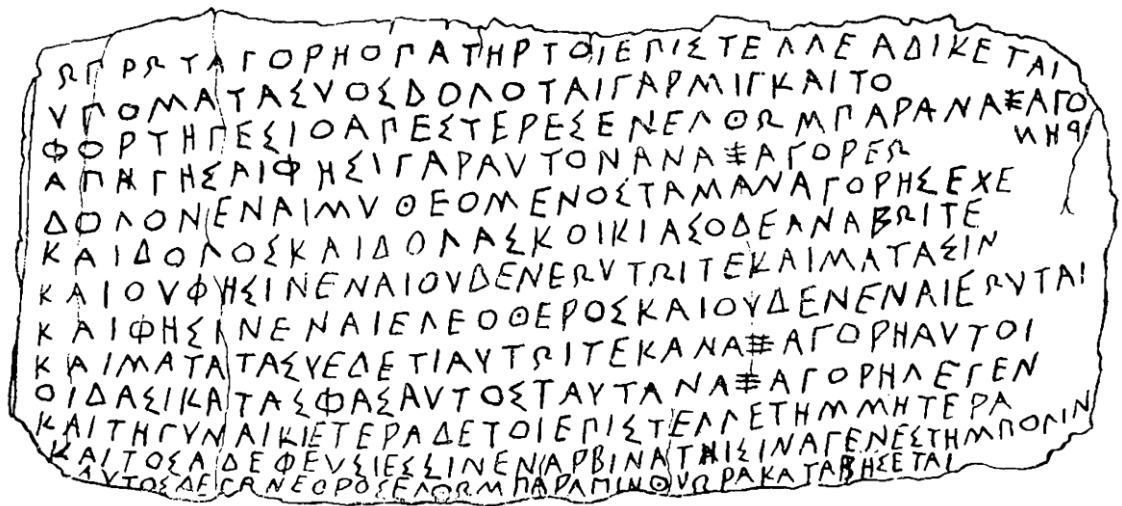 ΩΠΡΩΤΑΓΟΡΗΟΠΑΤΗΡΤΟΙΕΠΙΣΤΕΛΛΕΑΔΙΚΕΤΑΙ
ΥΠΟΜΑΤΑΣΥΟΣΔΟΛΟΤΑΙΓΑΡΜΙΓΚΑΙΤΟ
ΦΟΡΤΗΓΕΣΙΟΑΠΕΣΤΕΡΕΣΕΝΕΛΘΩΜΠΑΡΑΝΑΞΑΓΟ
ΡΗΝ
ΑΠΗΓΗΣΑΙΦΗΣΙΓΑΡΑΥΤΟΝΑΝΑΞΑΓΟΡΕΩ
ΔΟΛΟΝΕΝΑΙΜΥΘΕΟΜΕΝΟΣΤΑΜΑΝΑΓΟΡΗΣΕΧΕ
ΚΑΙΔΟΛΟΣΚΑΙΔΟΛΑΣΚΟΙΚΙΑΣΟΔΕΑΝΑΒΩΙΤΕ
ΚΑΙΟΥΦΗΣΙΝΕΝΑΙΟΥΔΕΝΕΩΥΤΩΙΤΕΚΑΙΜΑΤΑΣΙΝ
ΚΑΙΦΗΣΙΝΕΝΑΙΕΛΕΟΘΕΡΟΣΚΑΙΟΥΔΕΝΕΝΑΙΕΩΥΤΑΙ
ΚΑΙΜΑΤΑΤΑΣΥΕΔΕΤΙΑΥΤΩΙΤΕΚΑΝΑΞΑΓΟΡΗΑΥΤΟΙ
ΟΙΔΑΣΙΚΑΤΑΣΦΑΣΑΥΤΟΣΤΑΥΤΑΝΑΞΑΓΟΡΗΛΕΓΕΝ
ΚΑΙΤΗΓΥΝΑΙΚΙΕΤΕΡΑΔΕΤΟΙΕΠΙΣΤΕΛΛΕΤΗΜΜΗΤΕΡΑ
ΚΑΙΤΟΣΑΔΕΦΕΥΣΙΕΣΣΙΝΕΝΑΡΒΙΝΑΤΗΙΣΙΝΑΓΕΝΕΣΤΗΜΠΟΛΙΝ
ΑΥΤΟΣΔΕΓΑΝΕΟΡΟΣΕΛΘΩΜΠΑΡΑΜΙΝΘΥΩΡΑΚΑΤΑΒΗΣΕΤΑΙ